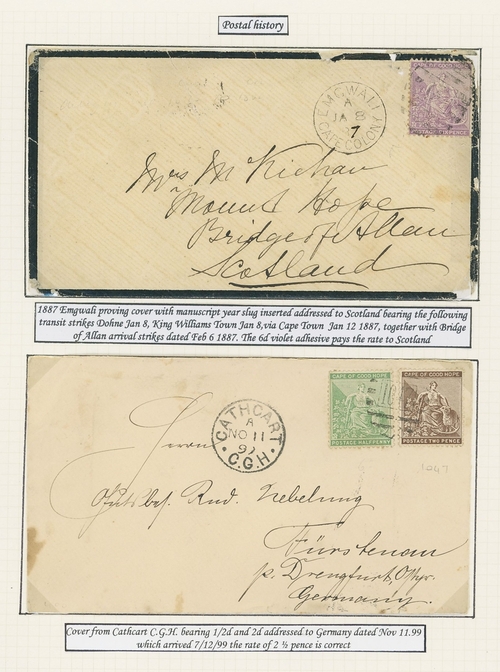 Postal history
EMGWALI
A
JA 8
7
CAPE COLONY
CAPE OF GOOD HOPE
POSTAGE SIXPENCE
Mrs McKichan
Mount Hope
Bridge of Allan
Scotland
1887 Emgwali proving cover with manuscript year slug inserted addressed to Scotland bearing the following
transit strikes Dohne Jan 8, King Williams Town Jan 8,via Cape Town Jan 12 1887, together with Bridge
of Allan arrival strikes dated Feb 6 1887. The 6d violet adhesive pays the rate to Scotland
CATHCART
A
NO 11
99
C.G.H.
CAPE OF GOOD HOPE
POSTAGE HALF PENNY
CAPE OF GOOD HOPE
POSTAGE TWO PENCE
1047
Herrn
Gutsbes. Rud. Nebelung
Fürstenau
p. Drengfurt, Ostpr.
Germany.
Cover from Cathcart C.G.H. bearing 1/2d and 2d addressed to Germany dated Nov 11.99
which arrived 7/12/99 the rate of 2 ½ pence is correct